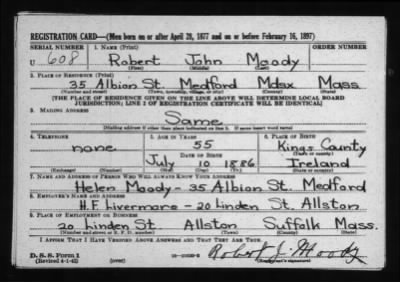 REGISTRATION CARD—(Men born on or after April 28, 1877 and on or before February 16, 1897)
SERIAL NUMBER 1. NAME (Print) ORDER NUMBER
U 608 Robert John Moody
(First) (Middle) (Last)
2. PLACE OF RESIDENCE (Print)
35 Albion St. Medford Mdsx Mass.
(Number and street) (Town, township, village, or city) (County) (State)
[THE PLACE OF RESIDENCE GIVEN ON THE LINE ABOVE WILL DETERMINE LOCAL BOARD
JURISDICTION; LINE 2 OF REGISTRATION CERTIFICATE WILL BE IDENTICAL]
3. MAILING ADDRESS
Same
[Mailing address if other than place indicated on line 2. If same insert word same]
4. TELEPHONE 5. AGE IN YEARS 6. PLACE OF BIRTH
none 55 Kings County
DATE OF BIRTH (Town or county)
July 10 1886 Ireland
(Exchange) (Number) (Mo.) (Day) (Yr.) (State or country)
7. NAME AND ADDRESS OF PERSON WHO WILL ALWAYS KNOW YOUR ADDRESS
Helen Moody - 35 Albion St. Medford
8. EMPLOYER'S NAME AND ADDRESS
H.F. Livermore - 20 Linden St. Allston
9. PLACE OF EMPLOYMENT OR BUSINESS
20 Linden St. Allston Suffolk Mass.
(Number and street or R. F. D. number) (Town) (County) (State)
I AFFIRM THAT I HAVE VERIFIED ABOVE ANSWERS AND THAT THEY ARE TRUE.
D. S. S. Form 1 Robert J. Moody
(Revised 4-1-42) (over) (Registrant's signature)